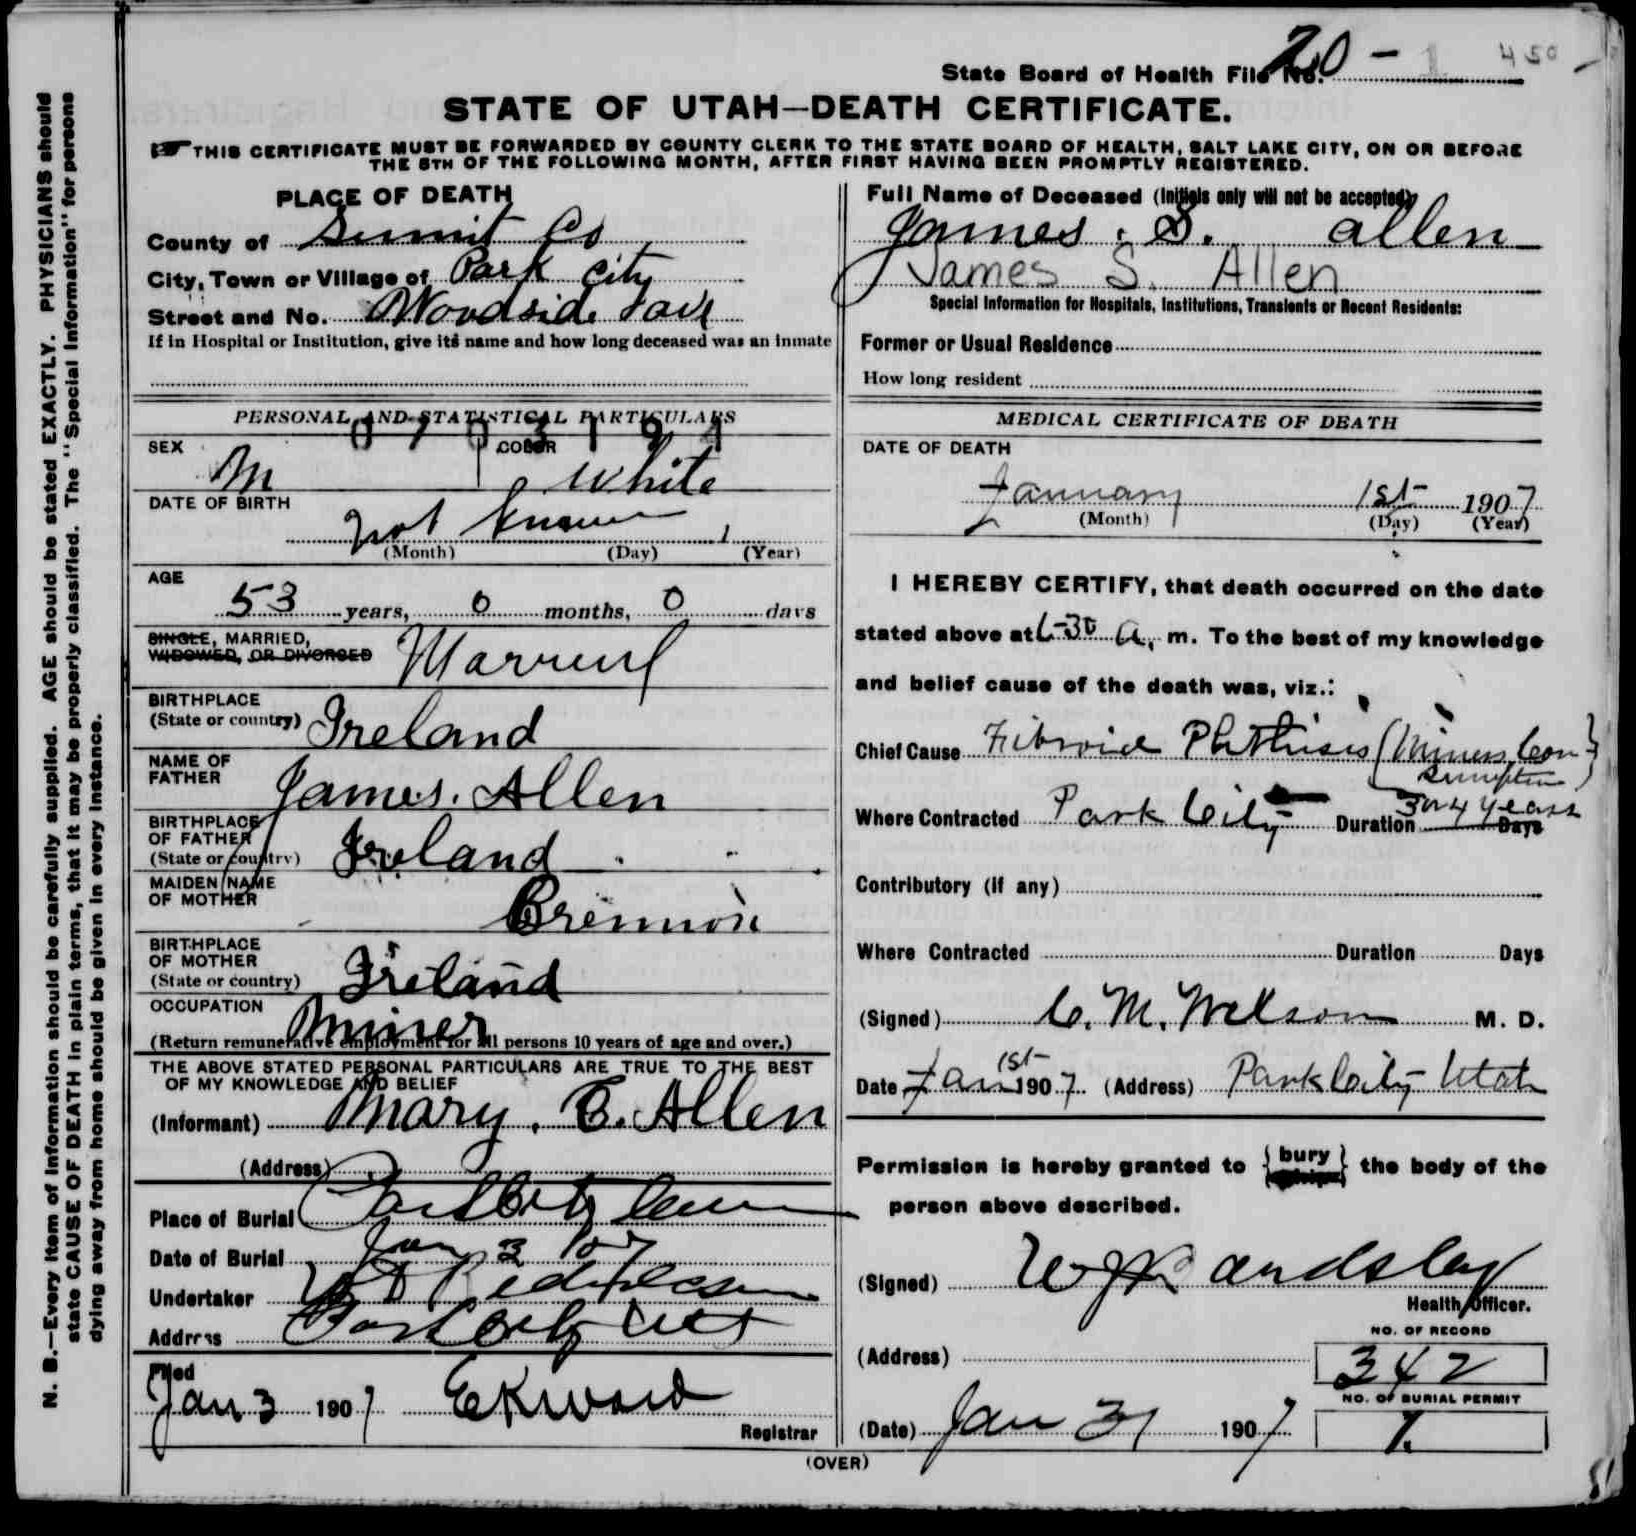 State Board of Health File No. 20-1 450
STATE OF UTAH—DEATH CERTIFICATE.
THIS CERTIFICATE MUST BE FORWARDED BY COUNTY CLERK TO THE STATE BOARD OF HEALTH, SALT LAKE CITY, ON OR BEFORE
THE 5TH OF THE FOLLOWING MONTH, AFTER FIRST HAVING BEEN PROMPTLY REGISTERED.
N. B.—Every item of information should be carefully supplied. AGE should be stated EXACTLY. PHYSICIANS should
state CAUSE OF DEATH in plain terms, that it may be properly classified. The "Special Information" for persons
dying away from home should be given in every instance.
PLACE OF DEATH
County of Summit Co
City, Town or Village of Park City
Street and No. Woodside ave
If in Hospital or Institution, give its name and how long deceased was an inmate
PERSONAL AND STATISTICAL PARTICULARS
SEX M COLOR White
DATE OF BIRTH
not known
(Month) (Day) (Year)
AGE
53 years, 0 months, 0 days
SINGLE, MARRIED,
WIDOWED, OR DIVORCED Married
BIRTHPLACE
(State or country) Ireland
NAME OF
FATHER James. Allen
BIRTHPLACE
OF FATHER
(State or country) Ireland
MAIDEN NAME
OF MOTHER Brennon
BIRTHPLACE
OF MOTHER
(State or country) Ireland
OCCUPATION
Miner
(Return remunerative employment for all persons 10 years of age and over.)
THE ABOVE STATED PERSONAL PARTICULARS ARE TRUE TO THE BEST
OF MY KNOWLEDGE AND BELIEF
(Informant) Mary. E. Allen
(Address)
Place of Burial Park City Cem
Date of Burial Jan 3 1907
Undertaker
Address Park City Utah
Filed
Jan 3 1907 E K Ward
Registrar
Full Name of Deceased (Initials only will not be accepted)
James. S. Allen
James S. Allen
Special Information for Hospitals, Institutions, Transients or Recent Residents:
Former or Usual Residence
How long resident
MEDICAL CERTIFICATE OF DEATH
DATE OF DEATH
January 1st 1907
(Month) (Day) (Year)
I HEREBY CERTIFY, that death occurred on the date
stated above at 6-30 a, m. To the best of my knowledge
and belief cause of the death was, viz.:
Chief Cause Fibroid Phthisis (Miners Con-
sumption)
Where Contracted Park City Duration 3 or 4 years Days
Contributory (if any)
Where Contracted Duration Days
(Signed) C. M. Wilson M. D.
Date Jan 1st 1907 (Address) Park City Utah
Permission is hereby granted to {bury} the body of the
person above described.
(Signed)
Health Officer.
NO. OF RECORD
(Address) 342
NO. OF BURIAL PERMIT
(Date) Jan 3 1907 1.
(OVER)